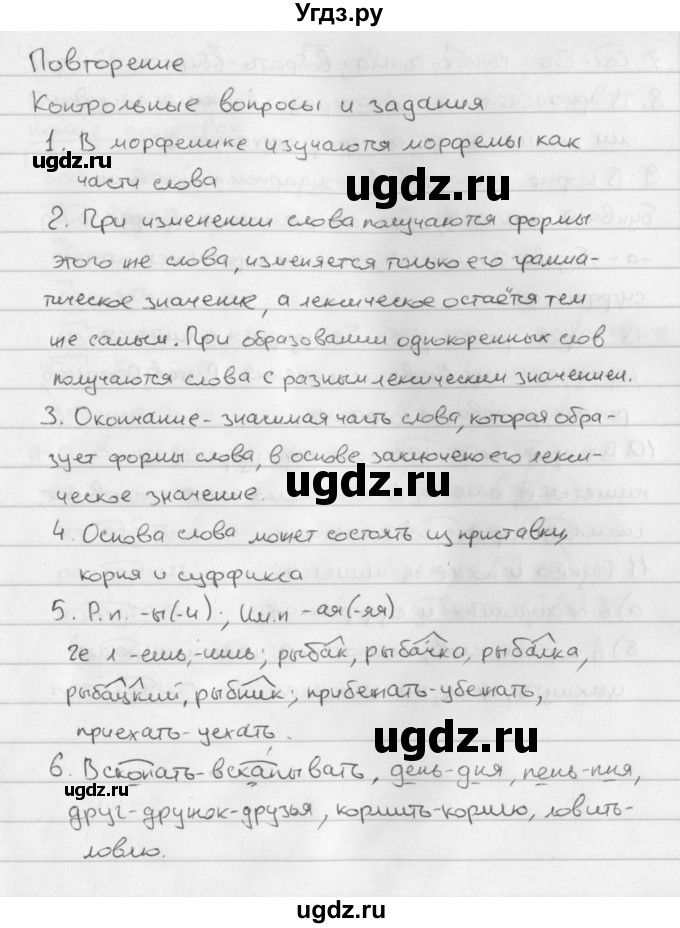 Угдз.ру
Повторение
Контрольные вопросы и задания
1. В морфемике изучаются морфемы как
ugdz.ru
части слова
ugdz.ru
2. При изменении слова получаются формы
этого же слова, изменяется только его грамма-
тическое значение, а лексическое остаётся тем
же самым. При образовании однокоренных слов
получаются слова с разным лексическим значением.
3. Окончание - значимая часть слова, которая обра-
зует формы слова, в основе заключено его лекси-
ческое значение.
ugdz.ru
4. Основа слова может состоять из приставки,
корня и суффикса
5. Р.п. -ы(-и); Им.п -ая(-яя)
2е л -ешь, -ишь; рыбак, рыбачка, рыбалка,
рыбацкий, рыбник; прибежать-убежать,
приехать-уехать.
ugdz.ru
6. Вскопать-вскапывать, день-дня, пень-пня,
друг-дружок-друзья, кормить-кормлю, ловить-
ловлю.
ugdz.ru
ugdz.ru
ugdz.ru